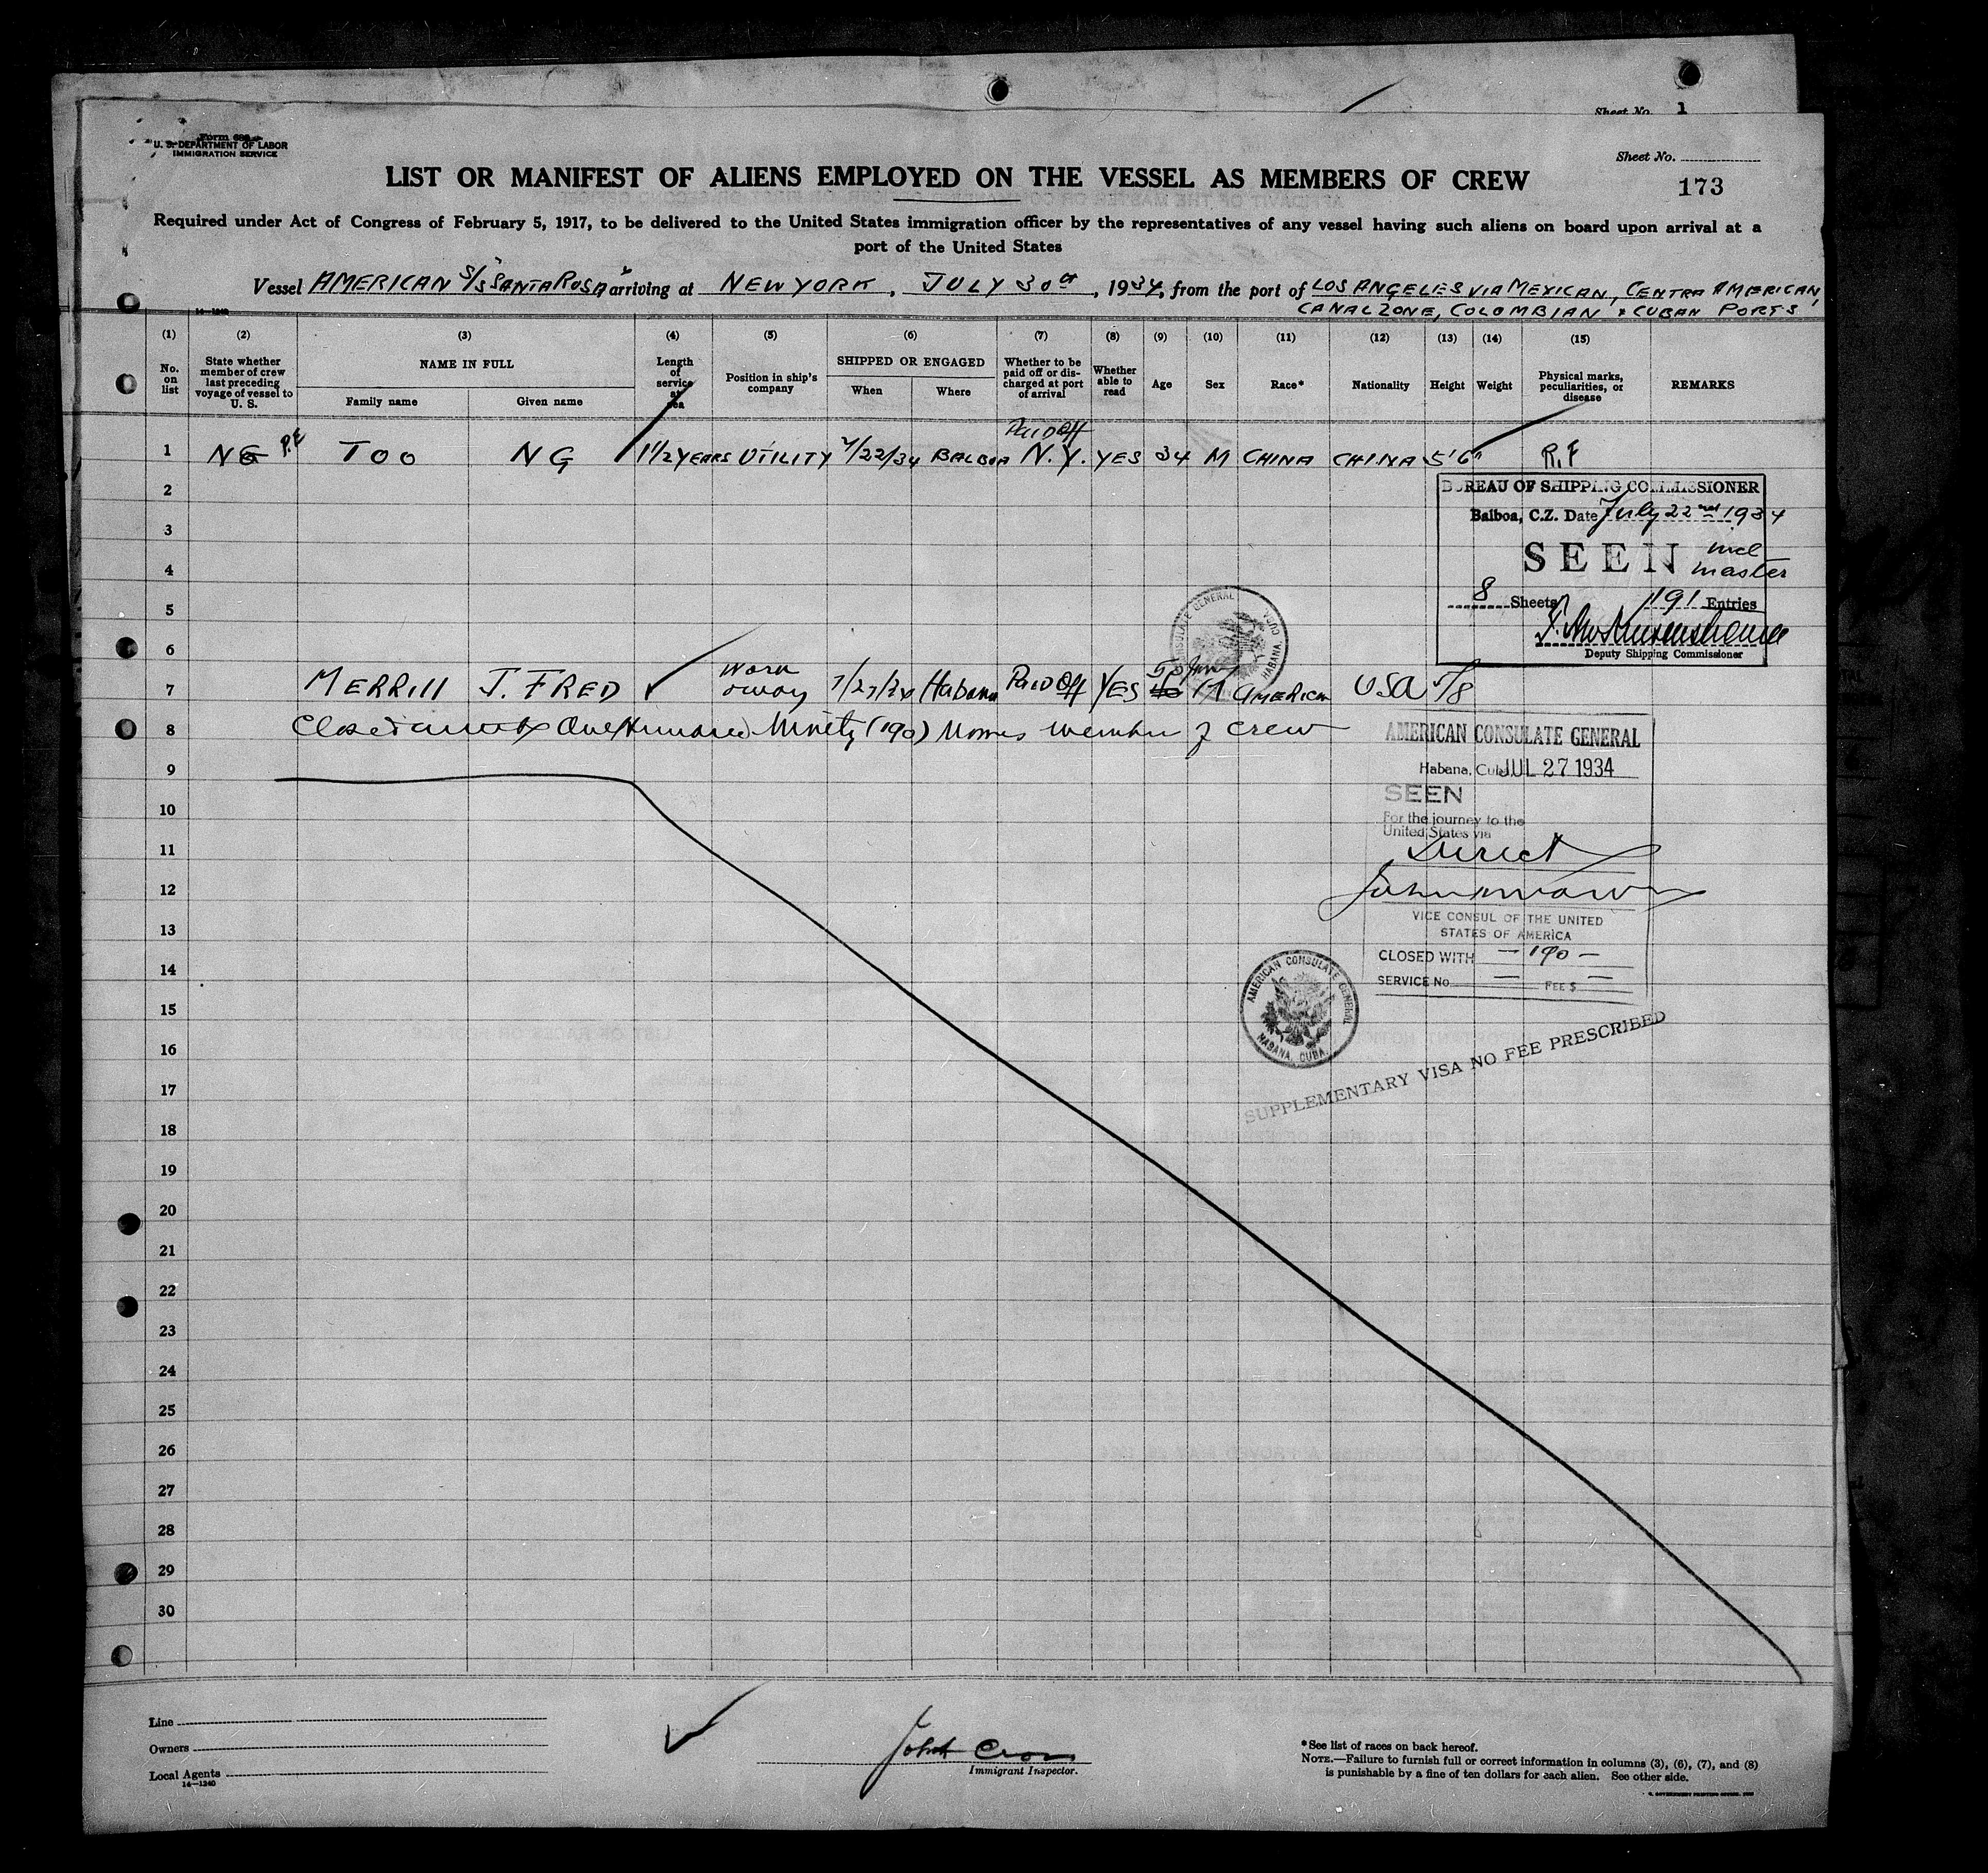 Sheet No. 1
Form 689
U. S. DEPARTMENT OF LABOR
IMMIGRATION SERVICE
Sheet No.
173
LIST OR MANIFEST OF ALIENS EMPLOYED ON THE VESSEL AS MEMBERS OF CREW
Required under Act of Congress of February 5, 1917, to be delivered to the United States immigration officer by the representatives of any vessel having such aliens on board upon arrival at a
port of the United States
Vessel AMERICAN S/S "SANTA ROSA" arriving at NEW YORK, JULY 30th, 1934, from the port of LOS ANGELES VIA MEXICAN, CENTRAL AMERICAN,
CANAL ZONE, COLOMBIAN & CUBAN PORTS
14-1240
(1) (2) (3) (4) (5) (6) (7) (8) (9) (10) (11) (12) (13) (14) (15)
No. on list
State whether member of crew last preceding voyage of vessel to U. S.
NAME IN FULL
Family name
Given name
Length of service at sea
Position in ship's company
SHIPPED OR ENGAGED
When
Where
Whether to be paid off or discharged at port of arrival
Whether able to read
Age
Sex
Race*
Nationality
Height
Weight
Physical marks, peculiarities, or disease
REMARKS
1 NG P.F TOO NG 1 1/2 YEARS UTILITY 7/22/34 BALBOA PAID Off N.Y. YES 34 M CHINA CHINA 5'6" R.F
2
3
4
5
6
BUREAU OF SHIPPING COMMISSIONER
Balboa, C.Z. Date July 22nd 1934
SEEN incl master
8 Sheets 191 Entries
Deputy Shipping Commissioner
AMERICAN CONSULATE GENERAL HABANA, CUBA
7 MERRILL J. FRED Work away 7/27/34 Habana PAID Off YES 50 M AMERICAN USA 5/8
8 Closed with One Hundred Ninety (190) Names member of crew
9
10
11
12
13
14
15
16
17
18
19
20
21
22
23
24
25
26
27
28
29
30
AMERICAN CONSULATE GENERAL
Habana, Cuba JUL 27 1934
SEEN
For the journey to the
United States via
Direct
VICE CONSUL OF THE UNITED
STATES OF AMERICA
CLOSED WITH — 190 —
SERVICE No. — FEE $ —
AMERICAN CONSULATE GENERAL
HABANA, CUBA.
SUPPLEMENTARY VISA NO FEE PRESCRIBED
Line
Owners
Local Agents
14-1240
John Cron
Immigrant Inspector.
*See list of races on back hereof.
NOTE.—Failure to furnish full or correct information in columns (3), (6), (7), and (8)
is punishable by a fine of ten dollars for each alien. See other side.
U. S. GOVERNMENT PRINTING OFFICE